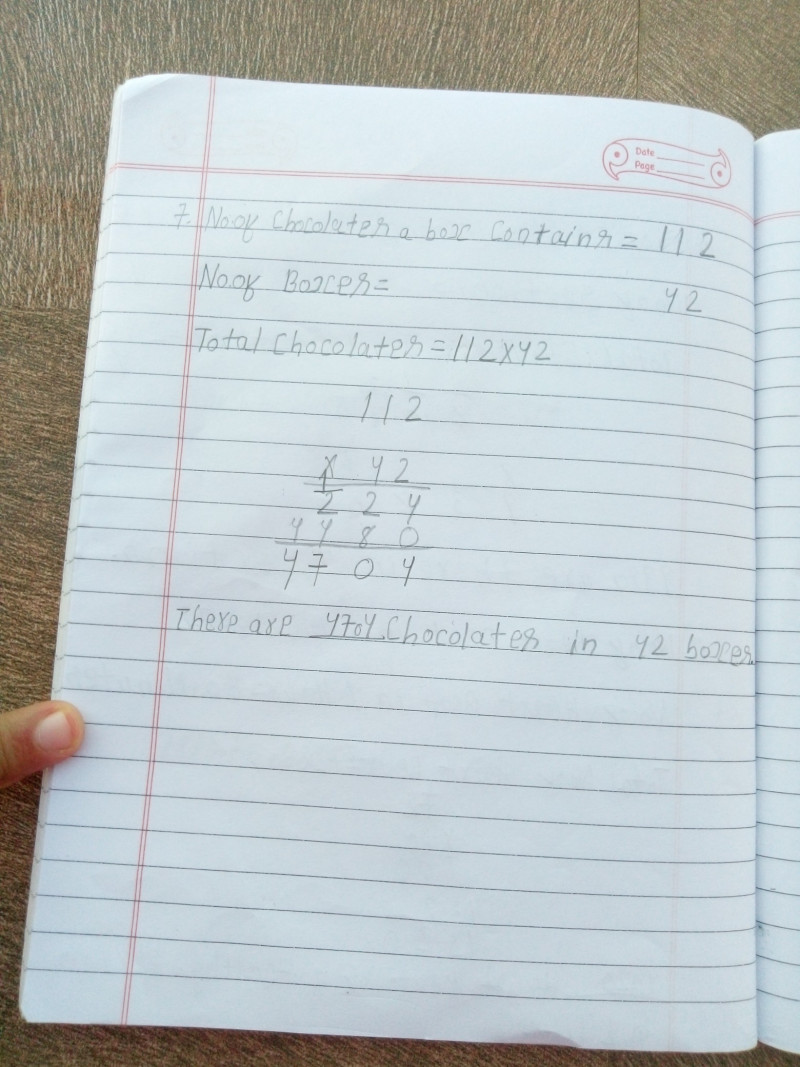 Date
Page
7. No.of Chocolates a box Contains = 112
No.of Boxes = 42
Total Chocolates = 112x42
112
x 42
2 2 4
4 4 8 0
4 7 0 4
There are 4704 Chocolates in 42 boxes.